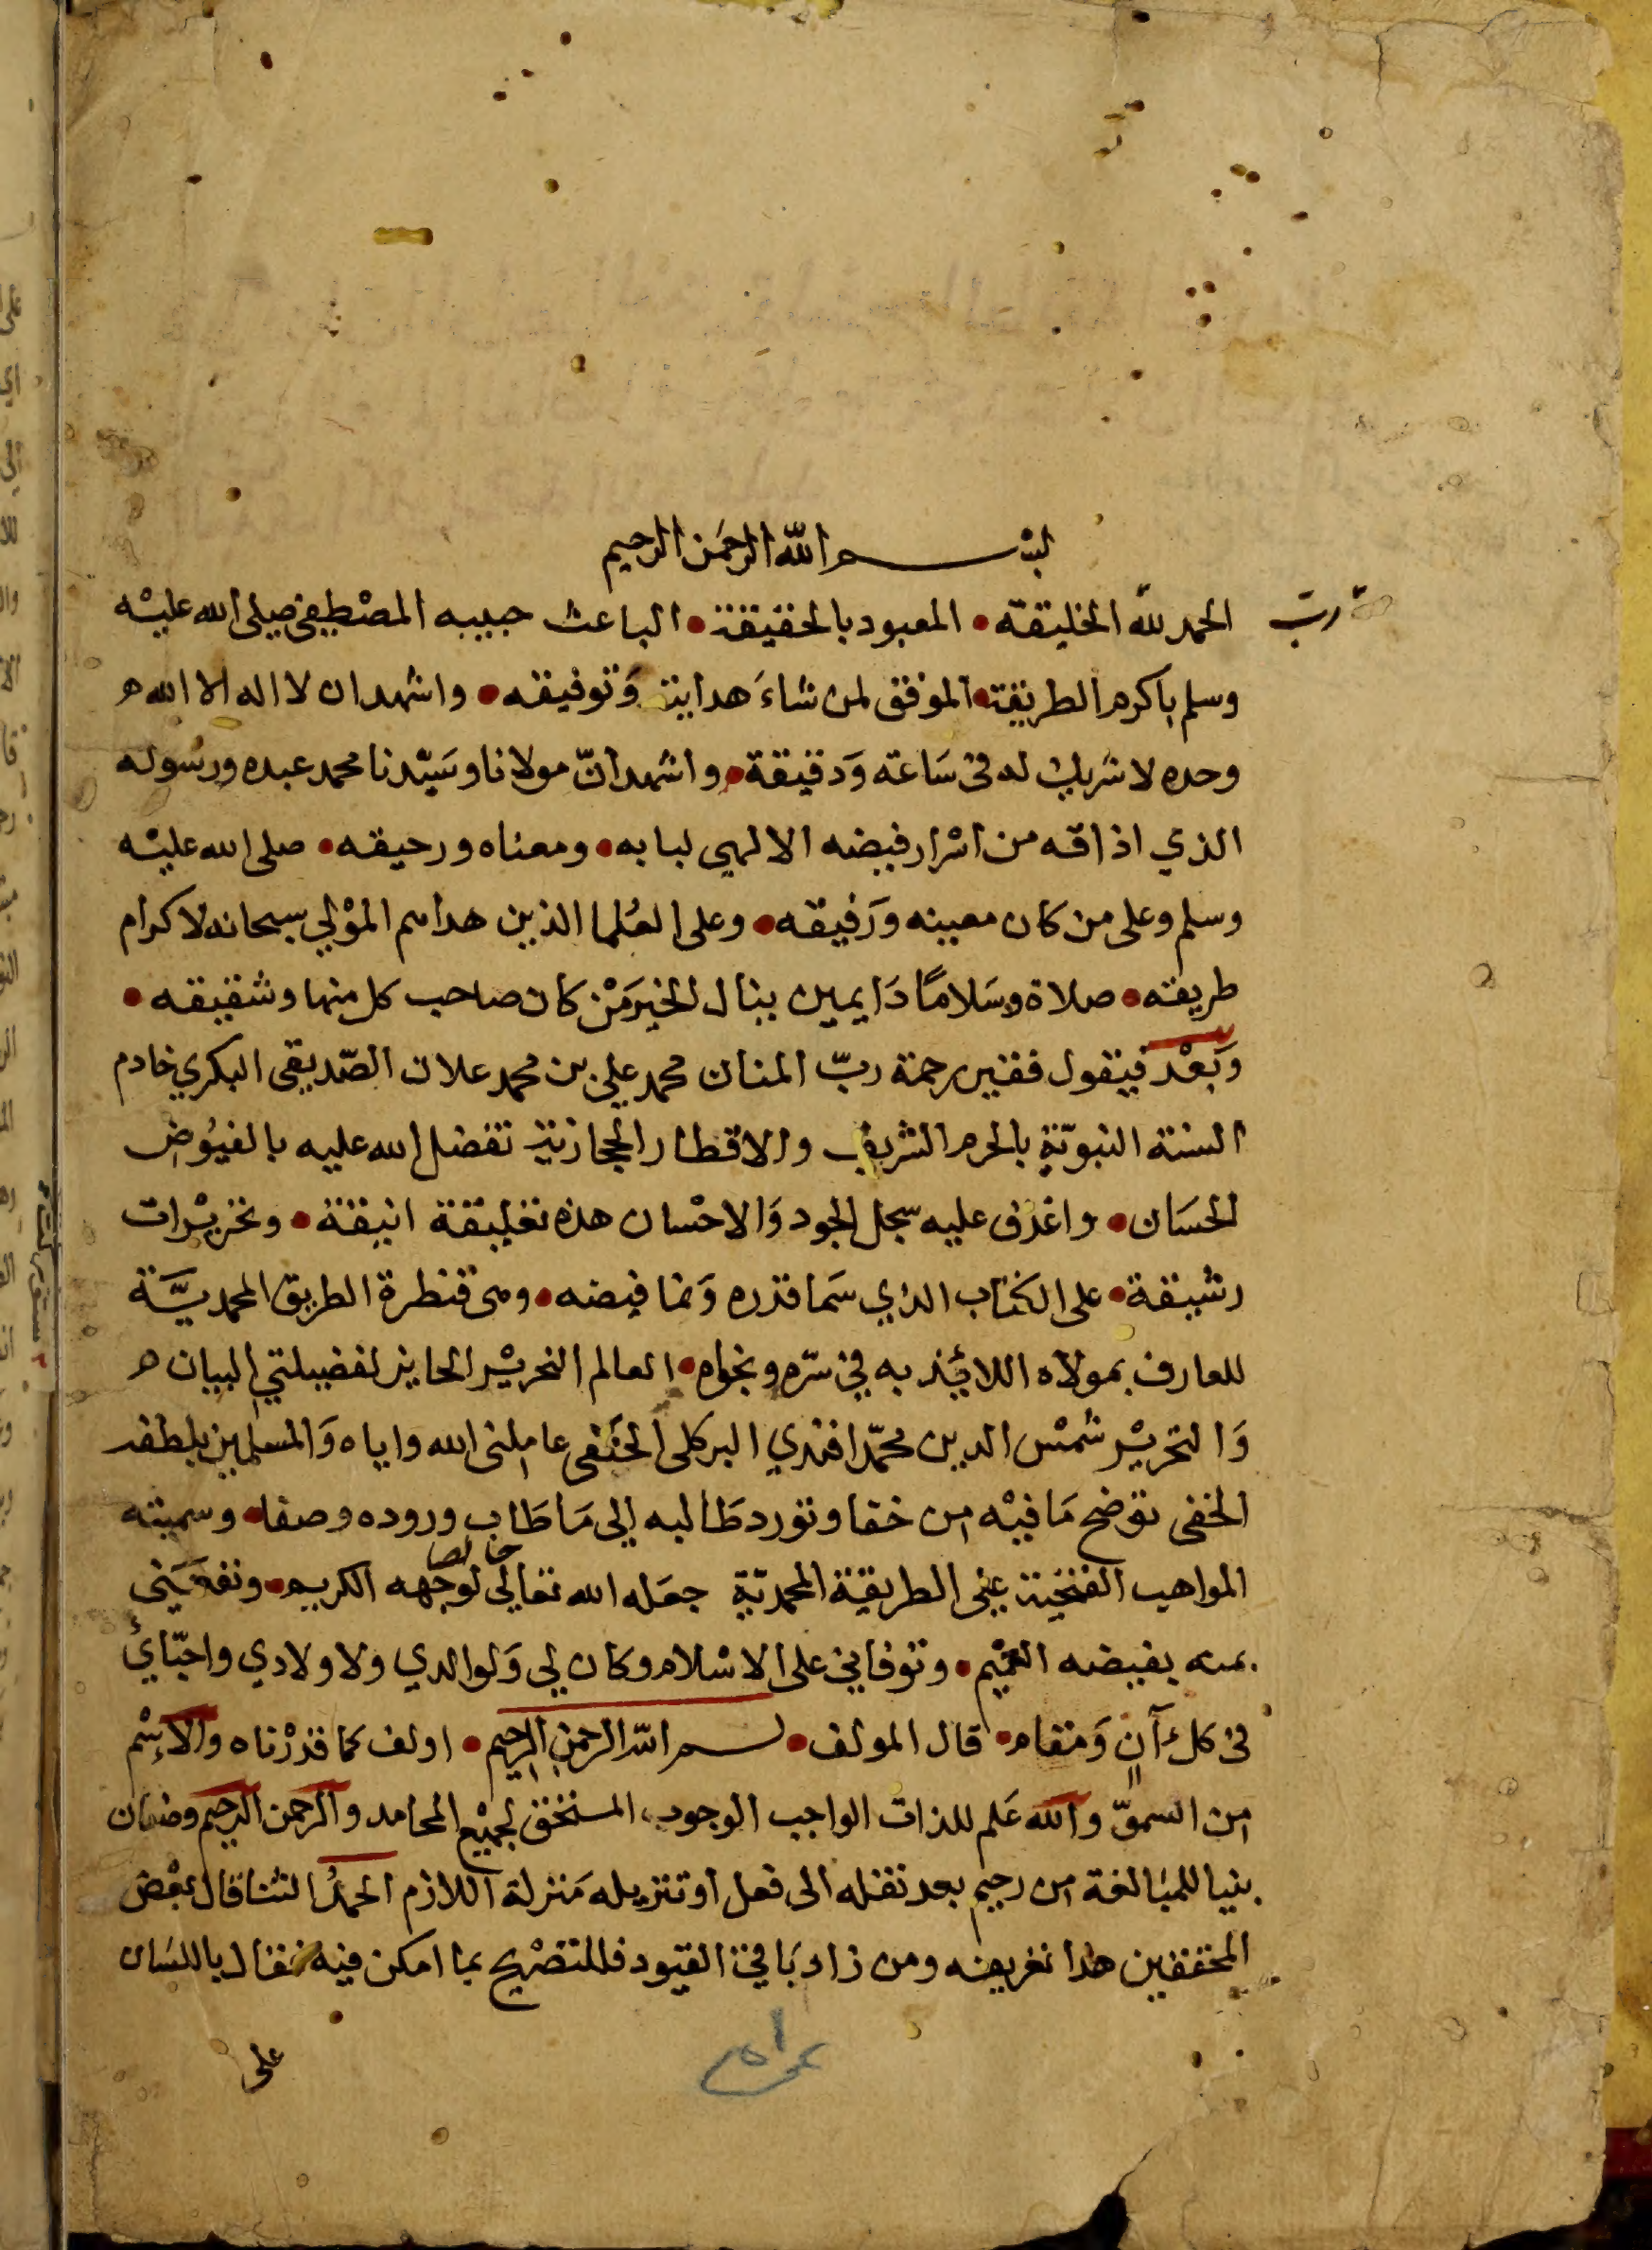 بسم الله الرحمن الرحيم
الحمد لله الخليقة • المعبود بالحقيقة • الباعث حبيبه المصطفى صلى الله عليه
رب
وسلم باكرم الطريقة • الموفق لمن شاء هدايته وتوفيقه • واشهد ان لا اله الا الله
وحده لا شريك له في ساعة ودقيقة • واشهد ان مولانا وسيدنا محمد عبده ورسوله
الذي اذاقه من اسرار فيضه الالهي لبابه • ومعناه ورحيقه • صلى الله عليه
وسلم وعلى من كان معينه ورفيقه • وعلى العلما الذين هداهم المولي سبحانه لاكرام
طريقته • صلاة وسلامًا دايمين ينال الخير مَن كان صاحب كل منها وشقيقه •
وبعد فيقول فقير رحمة ربّ المنان محمد علي بن محمد علان الصّديقي البكري خادم
السنة النبويّة بالحرم الشريف والاقطار الحجازية تفضل الله عليه بالفيُوض
الحسَان • واغدق عليه سجل الجود وَالاحْسان هذه تعليقة انيقة • وتحريْرات
رشيقة • على الكتاب الذي سَما قدره وَنما فيضه • وهي قنطرة الطريق المحمديَّة
للعارف بمولاه اللائيذ به في سّره ونجواه • العالم النحريْر الحايز لفضيلتي البيان
وَالتحريْر شمْس الدين محمّد افندي البركلي الحنَفي عاملني الله واياه وَالمسلمين بلطفه
الخفي توضح مَا فيْه من خفا وتورد طَالبه إلى مَا طَاب وروده وصفا • وسميته
المواهب الفتحية على الطريقة المحمديّة جعَله الله تعالى خالصا لوجهه الكريم • ونفَعَني
بمنه بفيضه العميْم • وتوفاني على الاسْلام وكان لي وَلوالدي ولاولادي واحبّايئ
في كل آنٍ وَمقام • قال المولف • بسم الله الرحمن الرحيم • اولف كما قدرْناه والاِسْم
من السموّ والله عَلم للذات الواجب الوجود، المستحق لجميْع المحامد والرحمن الرحيم وصفان
بنيا للمبَالغة من رحيم بعد نقله الى فعل او تنزيله مَنزلة اللازم الحمدُ الثنا قال بعْض
المحققين هذا تعريفه ومن زاد بَاقي القيود فللتصْريح بما امكن فيه فقال باللسَان
على